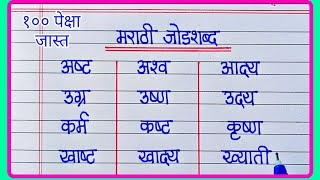 १०० पेक्षा
जास्त
मराठी जोडशब्द
अष्ट अश्व आद्य
उग्र उष्ण उदय
कर्म कष्ट कृष्ण
खाष्ट खाद्य ख्याती